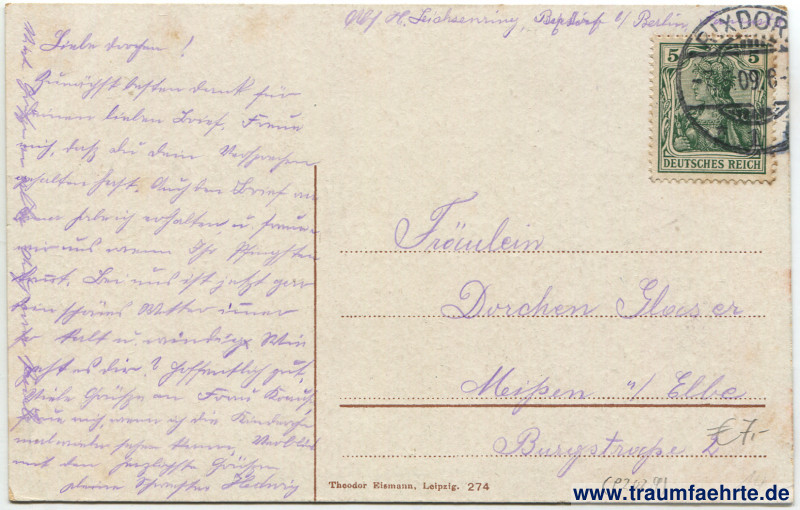 Abs. H. Leichsenring, Rixdorf b/ Berlin
RIXDORF
09.6
5 5
DEUTSCHES REICH
Liebe Dorchen!
Zunächst besten Dank für
deinen lieben Brief. Freue
mich, daß du dein Versprechen
gehalten hast. Auch den Brief an
erhalten u. freuen
wir uns wenn Ihr Pfingsten
kommt. Bei uns ist jetzt gar
kein schönes Wetter immer
so kalt u. windig. Wie
geht es dir? Hoffentlich gut.
Viele Grüße an Frau
freue mich, wenn ich die Kinderchen
mal wieder sehen kann. Verbleibe
mit den herzlichsten Grüßen
deine Schwester Hedwig
Fräulein
Dorchen Glaser
Meißen a/ Elbe
Burgstraße 2
€ 7.-
Theodor Eismann, Leipzig. 274
www.traumfaehrte.de